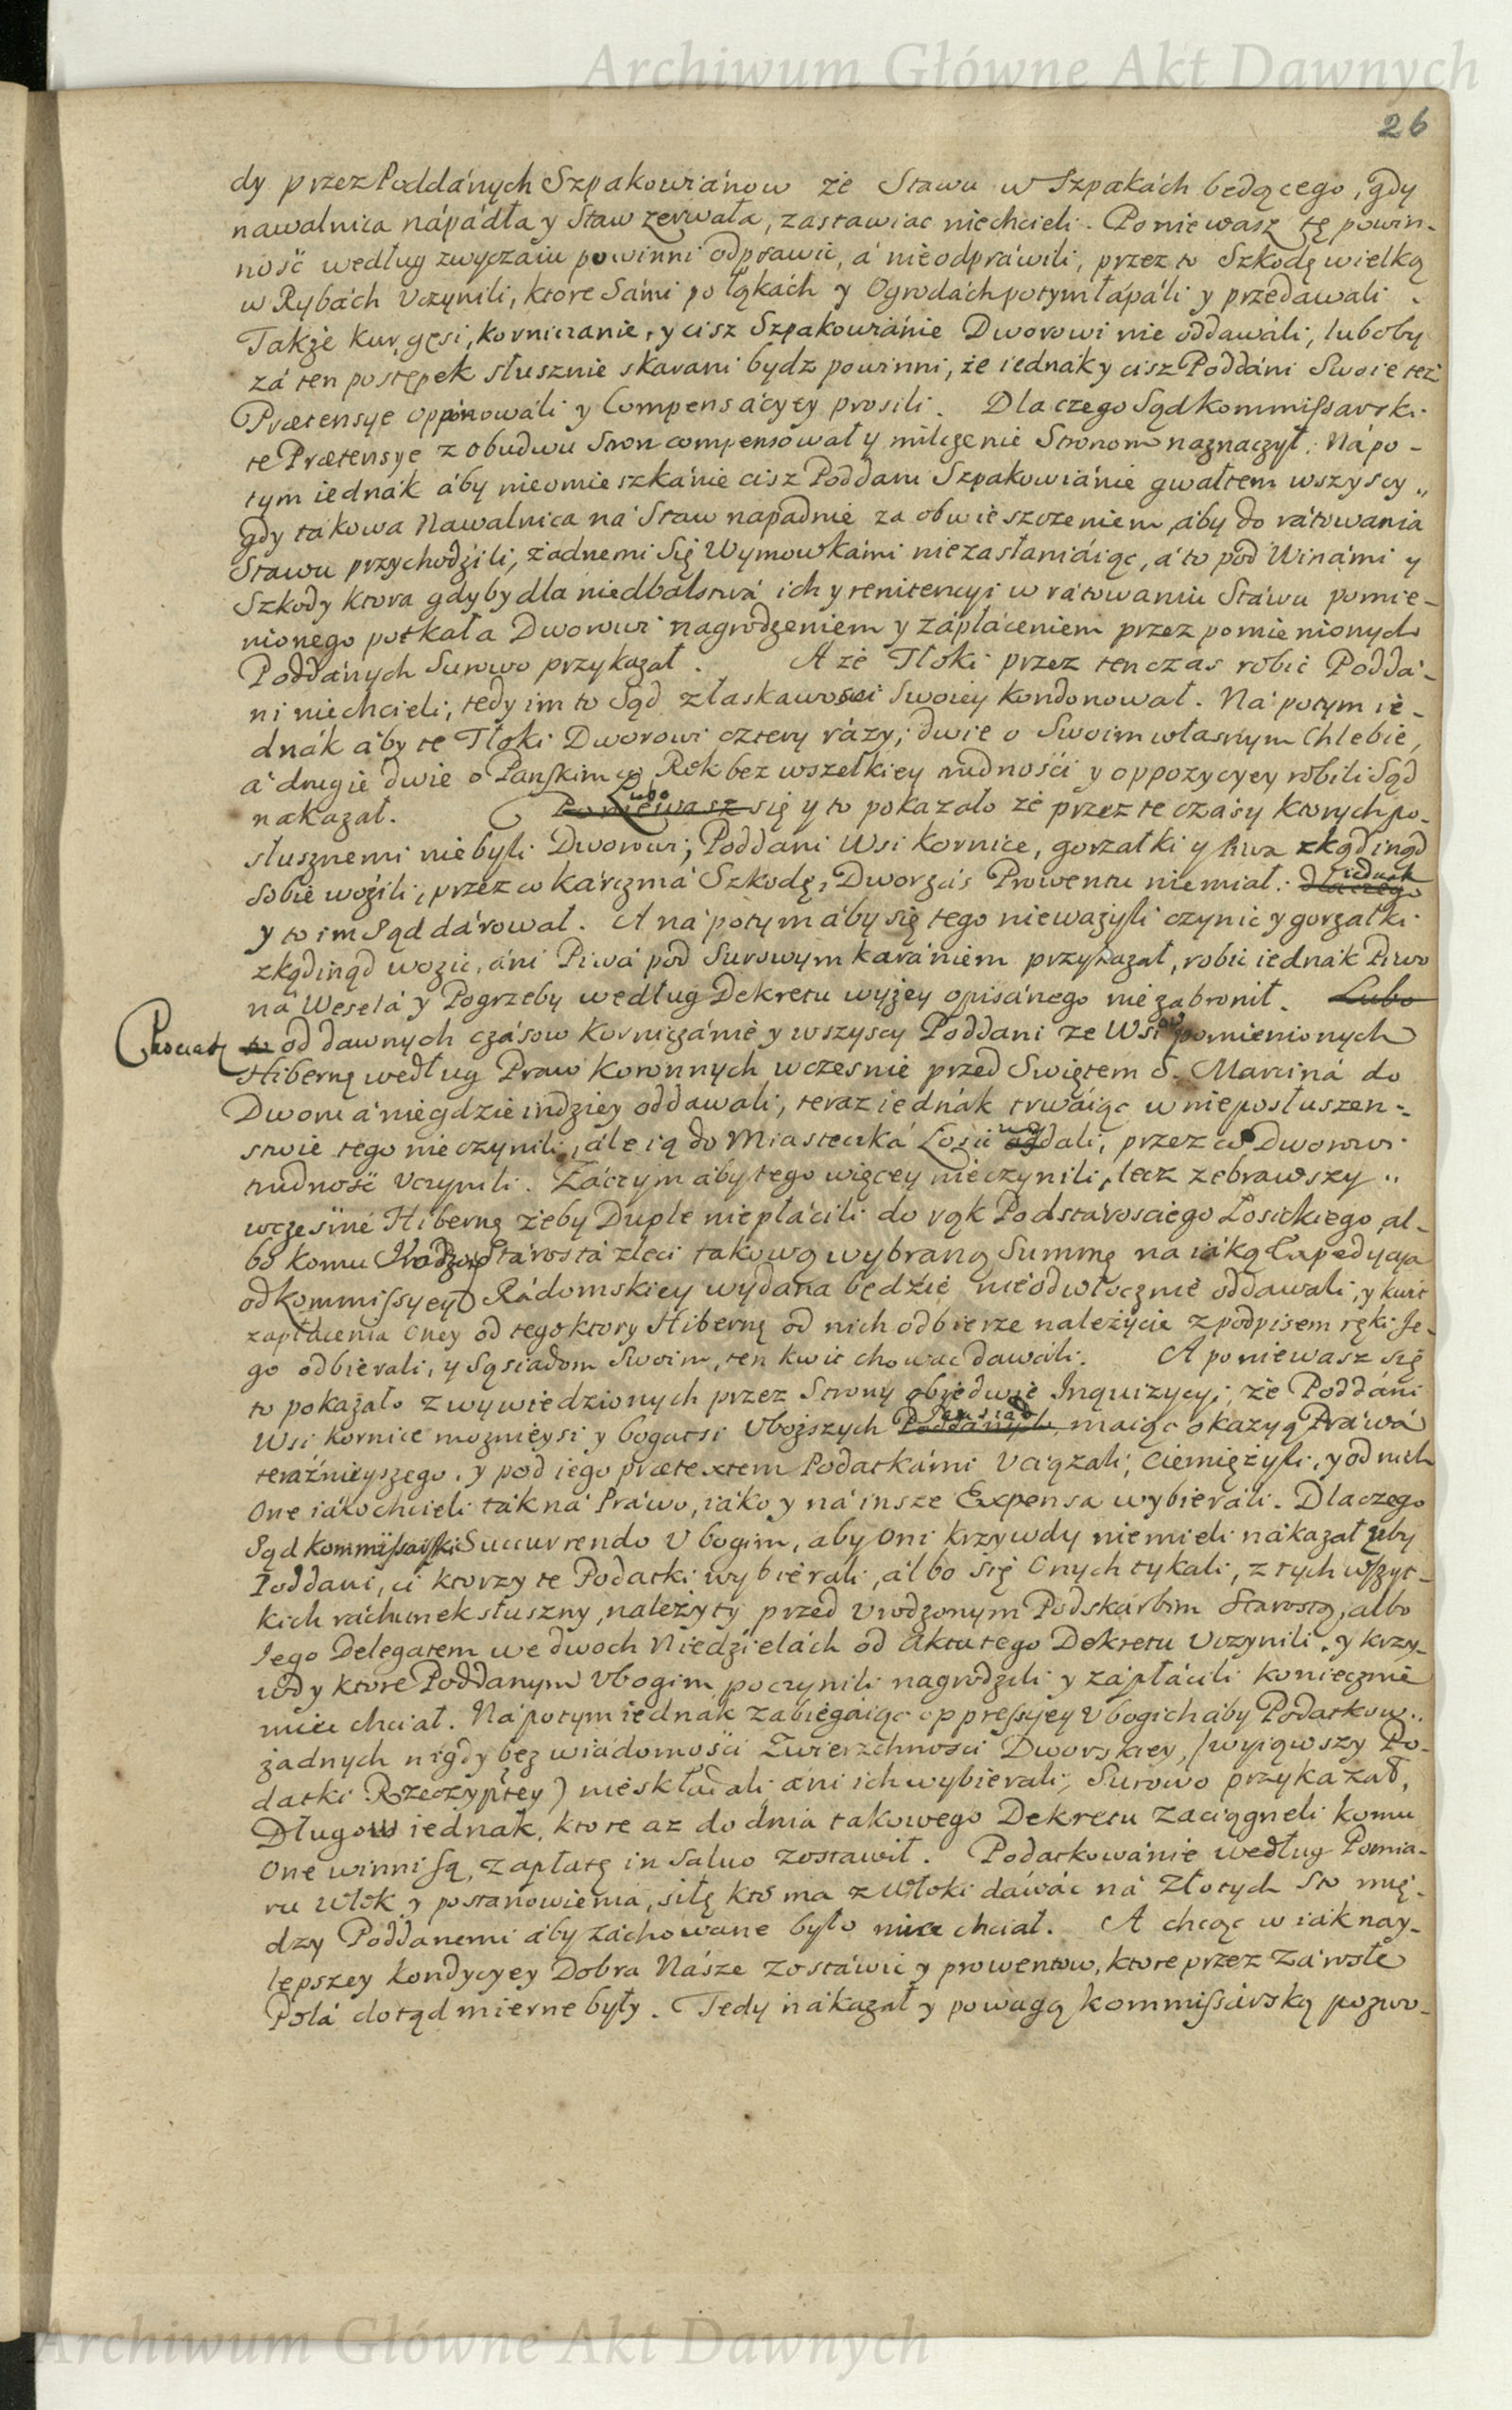 Archiwum Główne Akt Dawnych
26
dy przez Poddánych Szpakowiánow że Stawu w Szpakách będącego, gdy
nawalnica nápádła y Staw zerwała, zastawiac niechcieli. Poniewasz tę powin-
ność według zwyczaiu powinni odprawić, á nieodpráwili, przez to Szkodę wielką
w Rybách Vczynili, ktore Sámi po łąkách y Ogrodách potym łápáli y przedawali.
Także kur, gęsi, kornicżanie, y cisz Szpakowiánie Dworowi nie oddawáli, luboby
zá ten postępek słusznie skarani bydz powinni, że iednak y cisz Poddáni Swoie też
Prætensye opponowáli y Compensácyey prosili. Dla czego Sąd Kommissarski
te Prætensye z obudwu Stron compensował y milczenie Stronom naznaczył. Nápo-
tym iednák áby nieomieszkánie cisz Poddani Szpakowiánie gwałtem wszyscy
gdy takowa Nawalnica ná Staw napadnie za obwieszczeniem, aby do rátowania
Stawu przychodzili, żadnemi Się Wymowkámi niezasłaniáiąc, á to pod Winámi y
Szkody ktora gdyby dla niedbalstwá ich y renitencyi w rátowaniu Stáwu pomie-
nionego potkała Dworowi nagrodzeniem y zápłáceniem przez pomienionych
Poddánych Surowo przykazał. A że Tłoki przez ten czas robić Poddá-
ni niechcieli, tedy im to Sąd z łaskawości Swoiey kondonował. Ná potym ie-
dnák áby te Tłoki Dworowi cztery rázy, dwie o Swoim własnym Chlebie,
á drugie dwie o Panskim co Rok bez wszelkiey trudności y oppozycyey robili Sąd
nakazał. Poniewasz Lubo się y to pokazało że przez te czásy ktorych po-
słusznemi niebyli Dworowi, Poddani Wsi Kornice, gorzałki y Piwa zkądinąd
Sobie woźili, przez co kárczmá Szkodę, Dwor zás Prowentu niemiał. dlaczego iednak
y to im Sąd dárował. A ná potym áby się tego nieważyli czynić y gorzałki
zkądinąd wozić, áni Piwá pod Surowym karániem przykazał, robić iednák Piwo
ná Weselá y Pogrzeby według Dekretu wyżey opisánego nie zabronił. Lubo
Chociasz to od dawnych czásow Kornicżánie y wszyscy Poddani ze Wsi pomienionych
Hibernę według Praw Koronnych wczesnie przed Swiętem S. Marciná do
Dworu á niegdzie indziey oddawali, teraz iednák trwáiąc w nieposłuszen-
stwie tego nieczynili, ále ią do Miasteczká Łosic oddali, przez co Dworowi
trudność Vczynili. Záczym áby tego więcey nieczynili, lecz zebrawszy
wczesne Hibernę żeby Duple niepłácili do rąk Podstarosciego Łosickiego, al-
bo komu Vrodzony Stárostá zleci takową wybraną Summę na iáką Expedycya
od Kommissyey Rádomskiey wydana będzie nieodwłocznie oddawali, y kwit
zapłacenia Oney od tego ktory Hibernę od nich odbierze należycie z podpisem ręki Je-
go odbierali, y Sąsiadom Swoim, ten kwit chować dawáli. A poniewasz się
to pokazáło z wywiedzionych przez Strony obiedwie Inquizycyi, że Poddáni
Wsi Kornice możnieysi y bogatsi Vboższych Poddanych Sąsiad maiąc okazyą Práwá
teráźnieyszego, y pod iego prætextem Podatkámi Vciązali, Ciemiężyli, y od nich
One iáko chcieli ták ná Práwo, iáko y ná insze Expensa wybieráli. Dlaczego
Sąd Kommissarski Succurrendo Vbogim, aby oni krzywdy niemieli nákazał żeby
Poddani, ci ktorzy te Podatki wybieráli, álbo się Onych tykali, z tych wszyt-
kich ráchunek słuszny, należyty przed Vrodzonym Podskárbim Starostą, albo
Jego Delegatem we dwoch Niedzielách od áktu tego Dekretu Vczynili, y krzy-
wdy ktore Poddanym Vbogim poczynili nagrodzili y zápłácili koniecznie
mieć chciał. Nápotym iednak zabiegáiąc oppressyey Vbogich áby Podatkow
żadnych nigdy bez wiádomości Zwierzchności Dworskiey, (wyiąwszy Po-
datki Rzeczyptey) nieskładali, áni ich wybierali, Surowo przykazał,
Długow iednak, ktore az do dnia takowego Dekretu zaciągneli komu
One winni Są, zapłatę in Saluo zostawił. Podatkowánie według Pomia-
ru Włok y postanowienia, siłę kto ma z Włoki dáwáć ná Złotych Sto mię-
dzy Poddanemi áby záchowane było mieć chciał. A chcąc w iáknay-
lepszey Kondycyey Dobra Násze zostáwić y prowentow, ktore przez Zárosłe
Polá dotąd mierne były. Tedy nákazał y powagą Kommissárską pozwo-
Archiwum Główne Akt Dawnych